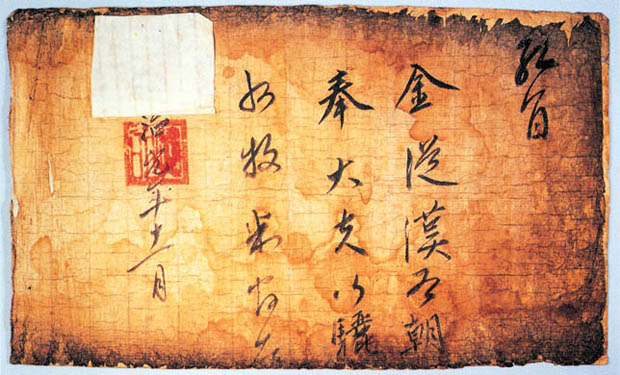 教旨
金從漢為朝
奉大夫行驪
州牧判官者
年十一月